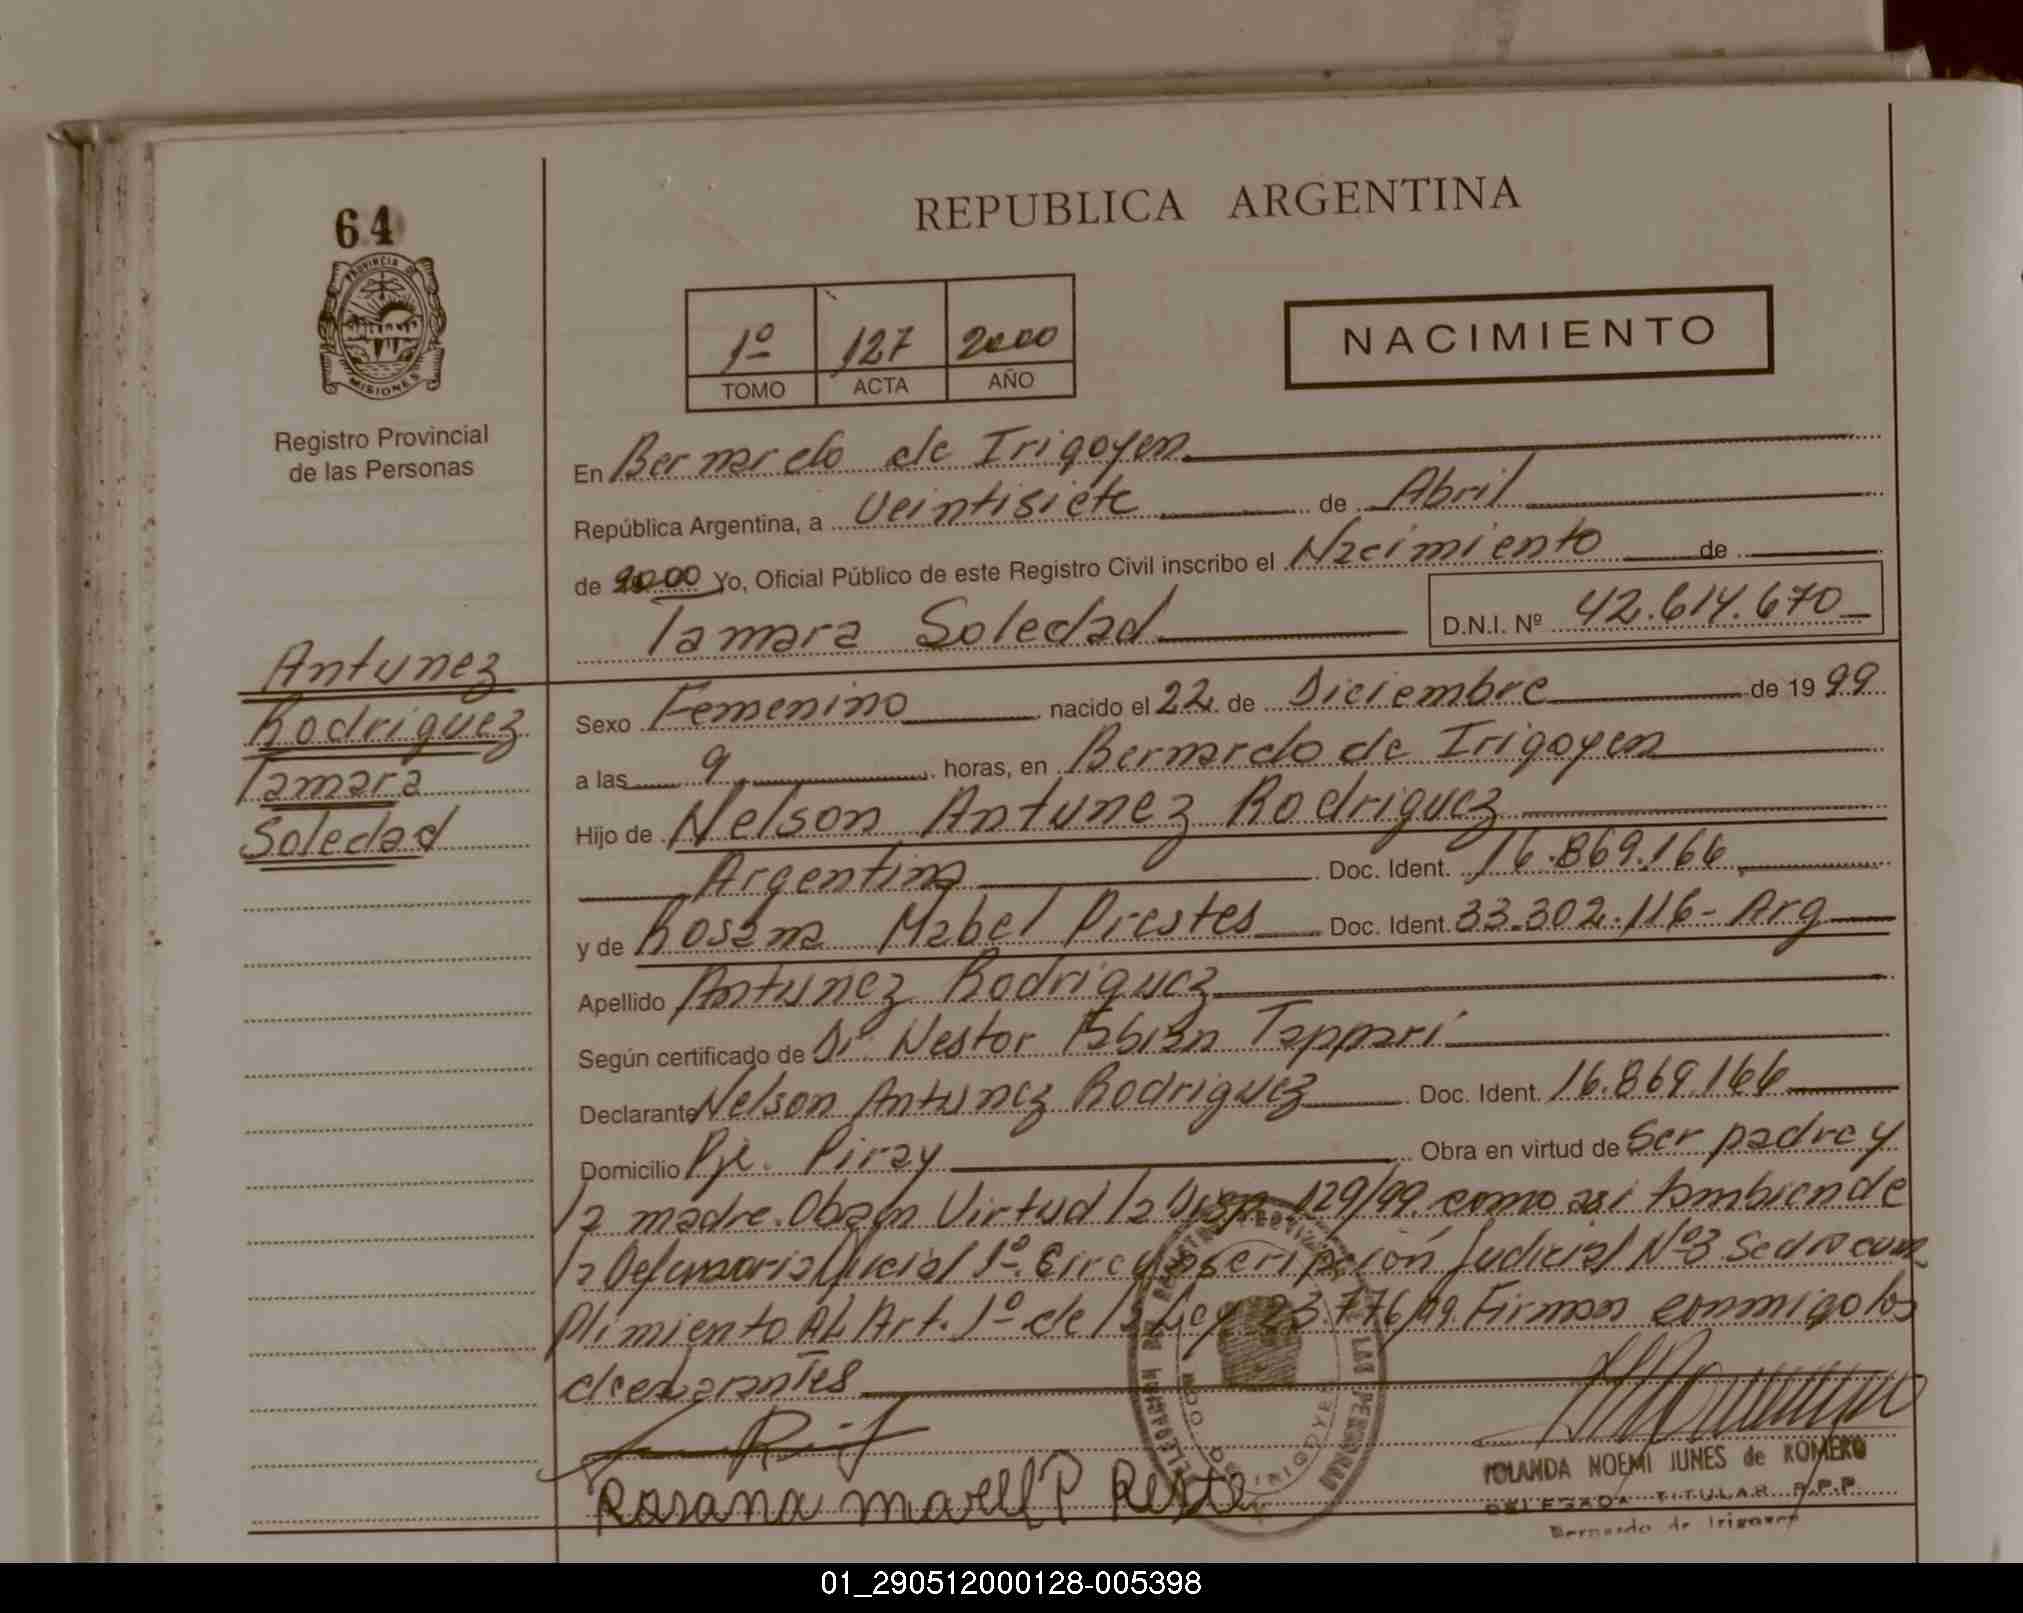 64
PROVINCIA DE
MISIONES
Registro Provincial
de las Personas
Antunez
Rodriguez
Tamara
Soledad
REPUBLICA ARGENTINA
1º 127 2000
TOMO ACTA AÑO
NACIMIENTO
En Bernardo de Irigoyen
República Argentina, a Veintisiete de Abril
de 2000 Yo, Oficial Público de este Registro Civil inscribo el Nacimiento de
Tamara Soledad D.N.I. Nº 42.614.670
Sexo Femenino nacido el 22 de Diciembre de 1999
a las 9 horas, en Bernardo de Irigoyen
Hijo de Nelson Antunez Rodriguez
Argentina Doc. Ident. 16.869.166
y de Rosana Mabel Prestes Doc. Ident. 33.302.116 - Arg
Apellido Antunez Rodriguez
Según certificado de Dr. Nestor Fabian Tappari
Declarante Nelson Antunez Rodriguez Doc. Ident. 16.869.166
Domicilio Pje. Piray Obra en virtud de Ser padre y
la madre. Obran Virtud la Disp. 129/99 como asi tambien de
la Defensoria Oficial 1º Circunscripción Judicial Nº3 Se dio cum
plimiento AL Art. 1º de la Ley 23.776/99. Firman conmigo los
declarantes
Rosana
YOLANDA NOEMI JUNES de ROMERO
DELEGADA TITULAR R.P.P.
Bernardo de Irigoyen
LAS PERSONAS
01_290512000128-005398